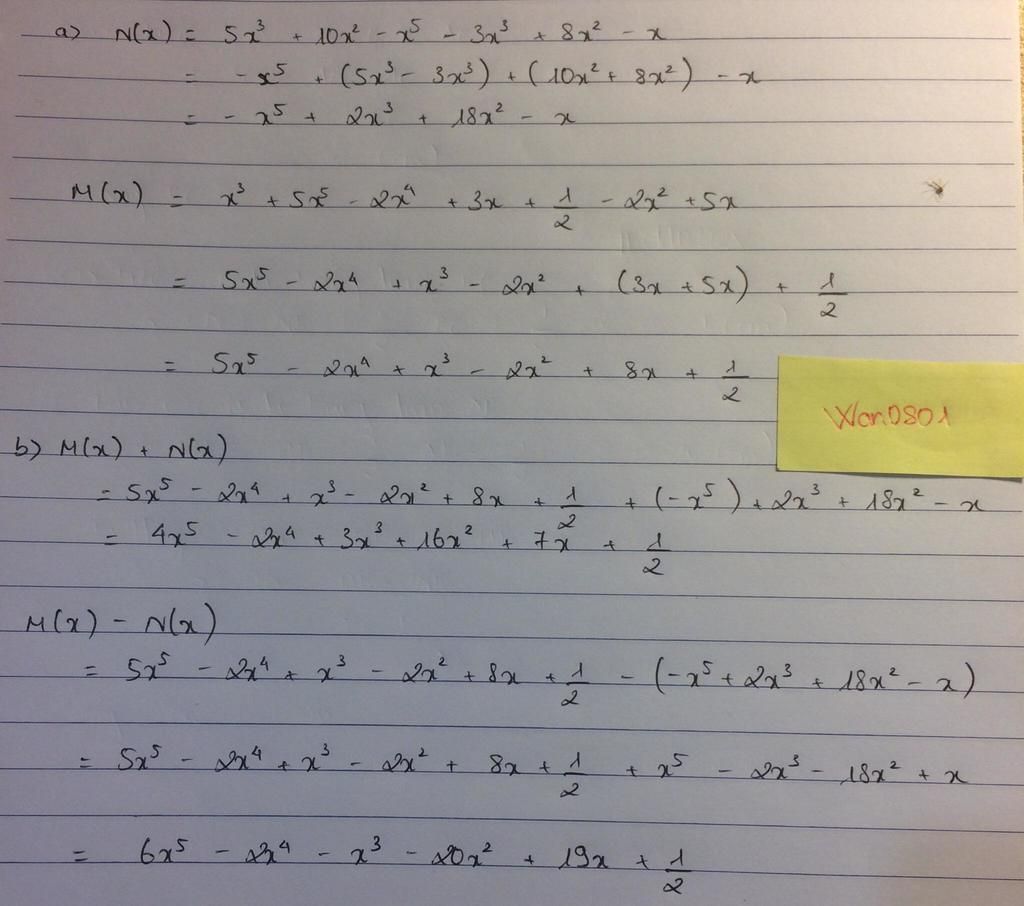 a) N(x) = 5x³ + 10x² - x⁵ - 3x³ + 8x² - x
= - x⁵ + (5x³ - 3x³) + (10x² + 8x²) - x
= - x⁵ + 2x³ + 18x² - x
M(x) = x³ + 5x⁵ - 2x⁴ + 3x + 1/2 - 2x² + 5x
= 5x⁵ - 2x⁴ + x³ - 2x² + (3x + 5x) + 1/2
= 5x⁵ - 2x⁴ + x³ - 2x² + 8x + 1/2
Wan0801
b) M(x) + N(x)
= 5x⁵ - 2x⁴ + x³ - 2x² + 8x + 1/2 + (-x⁵) + 2x³ + 18x² - x
= 4x⁵ - 2x⁴ + 3x³ + 16x² + 7x + 1/2
M(x) - N(x)
= 5x⁵ - 2x⁴ + x³ - 2x² + 8x + 1/2 - (-x⁵ + 2x³ + 18x² - x)
= 5x⁵ - 2x⁴ + x³ - 2x² + 8x + 1/2 + x⁵ - 2x³ - 18x² + x
= 6x⁵ - 2x⁴ - x³ - 20x² + 19x + 1/2